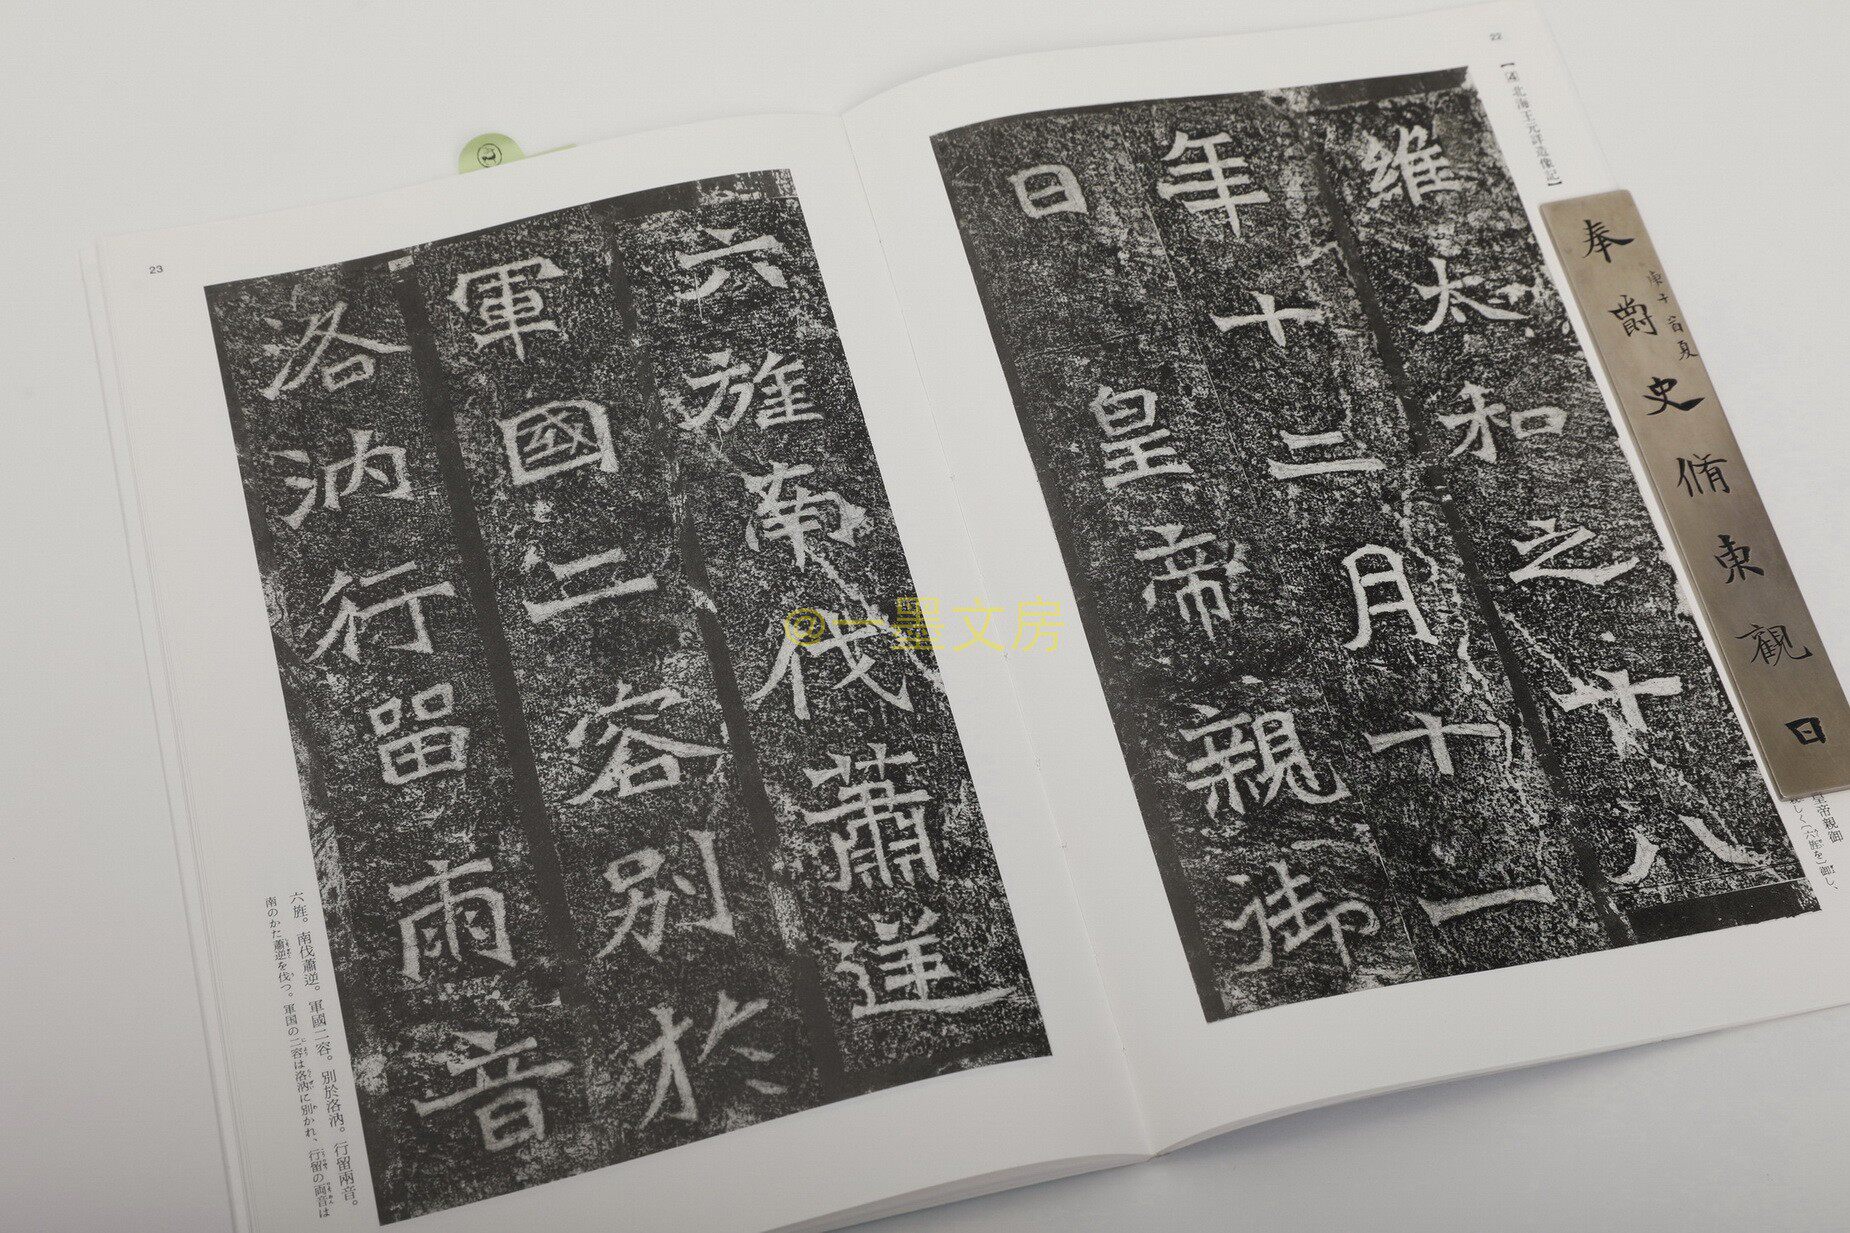 22
【4 北海王元詳造像記】
維太和之十八
年十二月十一
日 皇帝親御
皇帝親御
しく(六旌を)御し、
23
六旌南伐蕭逆
軍國二容別於
洛汭行留兩音
六旌。南伐蕭逆。軍國二容。別於洛汭。行留兩音。
南のかた蕭逆を伐つ。軍国の二容は洛汭に別かれ、行留の両音は
奉爵史脩東觀日
庚子首夏
@一墨文房